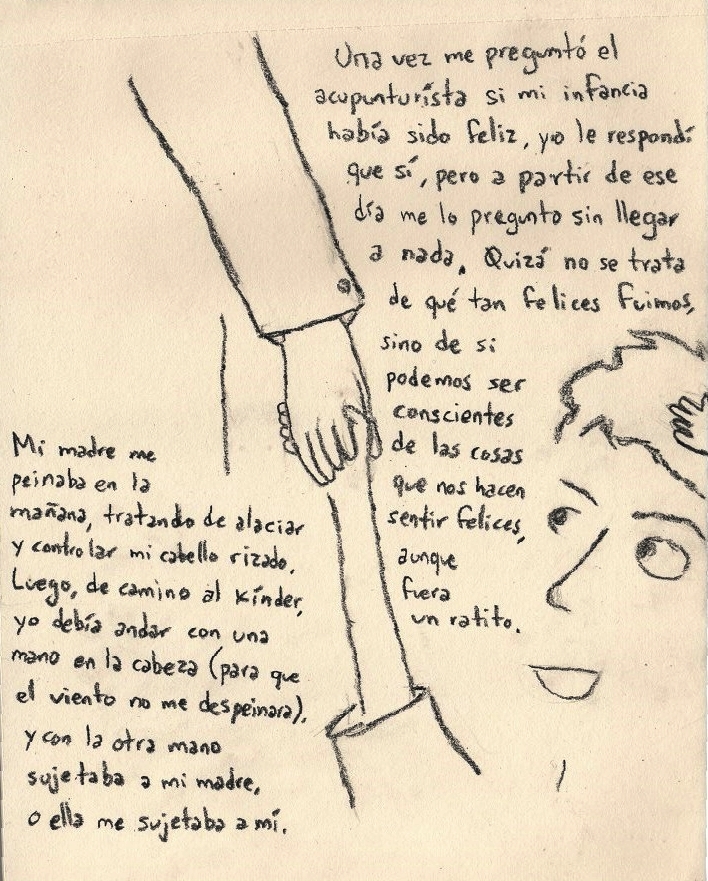 Una vez me preguntó el
acupunturista si mi infancia
había sido feliz, yo le respondí
que sí, pero a partir de ese
día me lo pregunto sin llegar
a nada. Quizá no se trata
de qué tan felices fuimos,
sino de si
podemos ser
conscientes
de las cosas
que nos hacen
sentir felices,
aunque
fuera
un ratito.
Mi madre me
peinaba en la
mañana, tratando de alaciar
y controlar mi cabello rizado.
Luego, de camino al kínder,
yo debía andar con una
mano en la cabeza (para que
el viento no me despeinara),
y con la otra mano
sujetaba a mi madre,
o ella me sujetaba a mí.